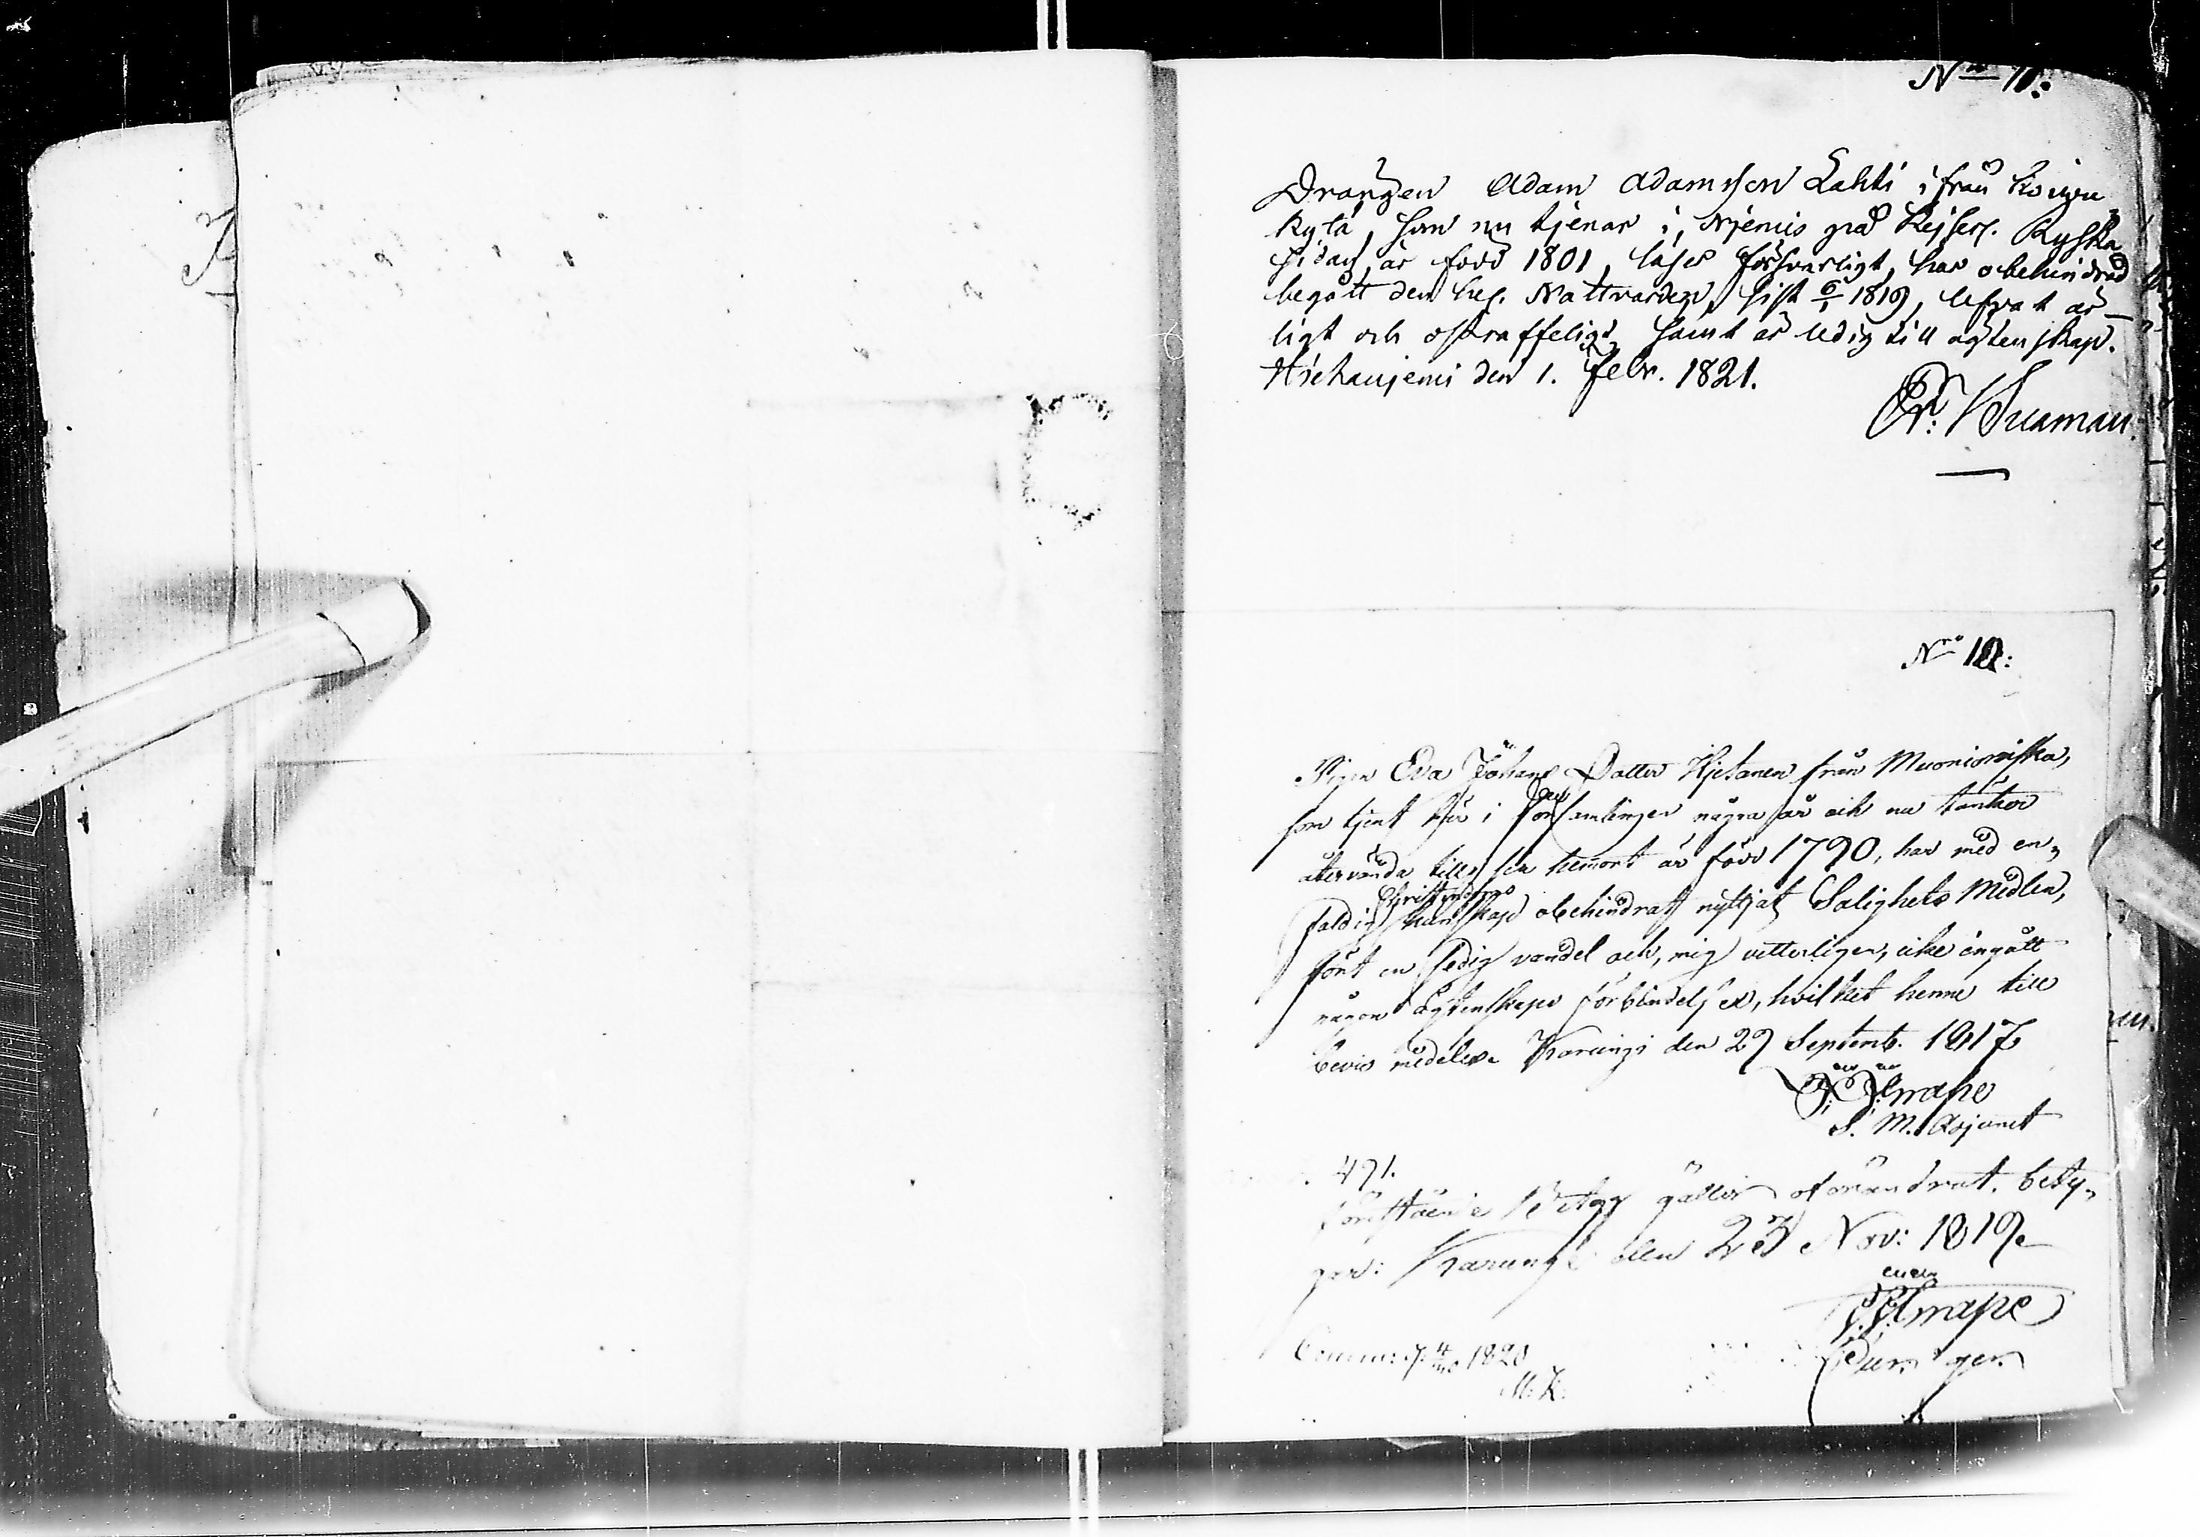 No 11:
Drängen Adam Adamsson Lahti ifrån Koivu
kylä, som nu tjenar i Njemis på Kejserl. Ryska
sidan, är född 1801, läser försvarligt, har obehindrad
begått den hel. Nattvarden, sist 6/1 1819, lefvat är-
ligt och ostraffeligt, samt är ledig till ägtenskap.
Hietaniemi den 1. Febr. 1821.
Er: Wuaman.
Nro 10:
Pigan Eva Johans Dotter Hjetanen från Muonioniska,
som tjent här i Församlingen några år och nu tänker
återvända till sin hemort är född 1790, har med en„
faldig Christendoms kunskap obehindrat nyttjat Salighets Medlen,
fört en sedig vandel och, mig vetterligen, icke ingått
någon Ägtenskaps förbindelse, hvilket henne till
bevis meddelas Karungi den 29 Septemb. 1817
S. M. Adjunct
491.
Förestående Betyg gäller oförändrat, bety„
gar: Karungi den 23 Nov: 1819
1820
M. K.